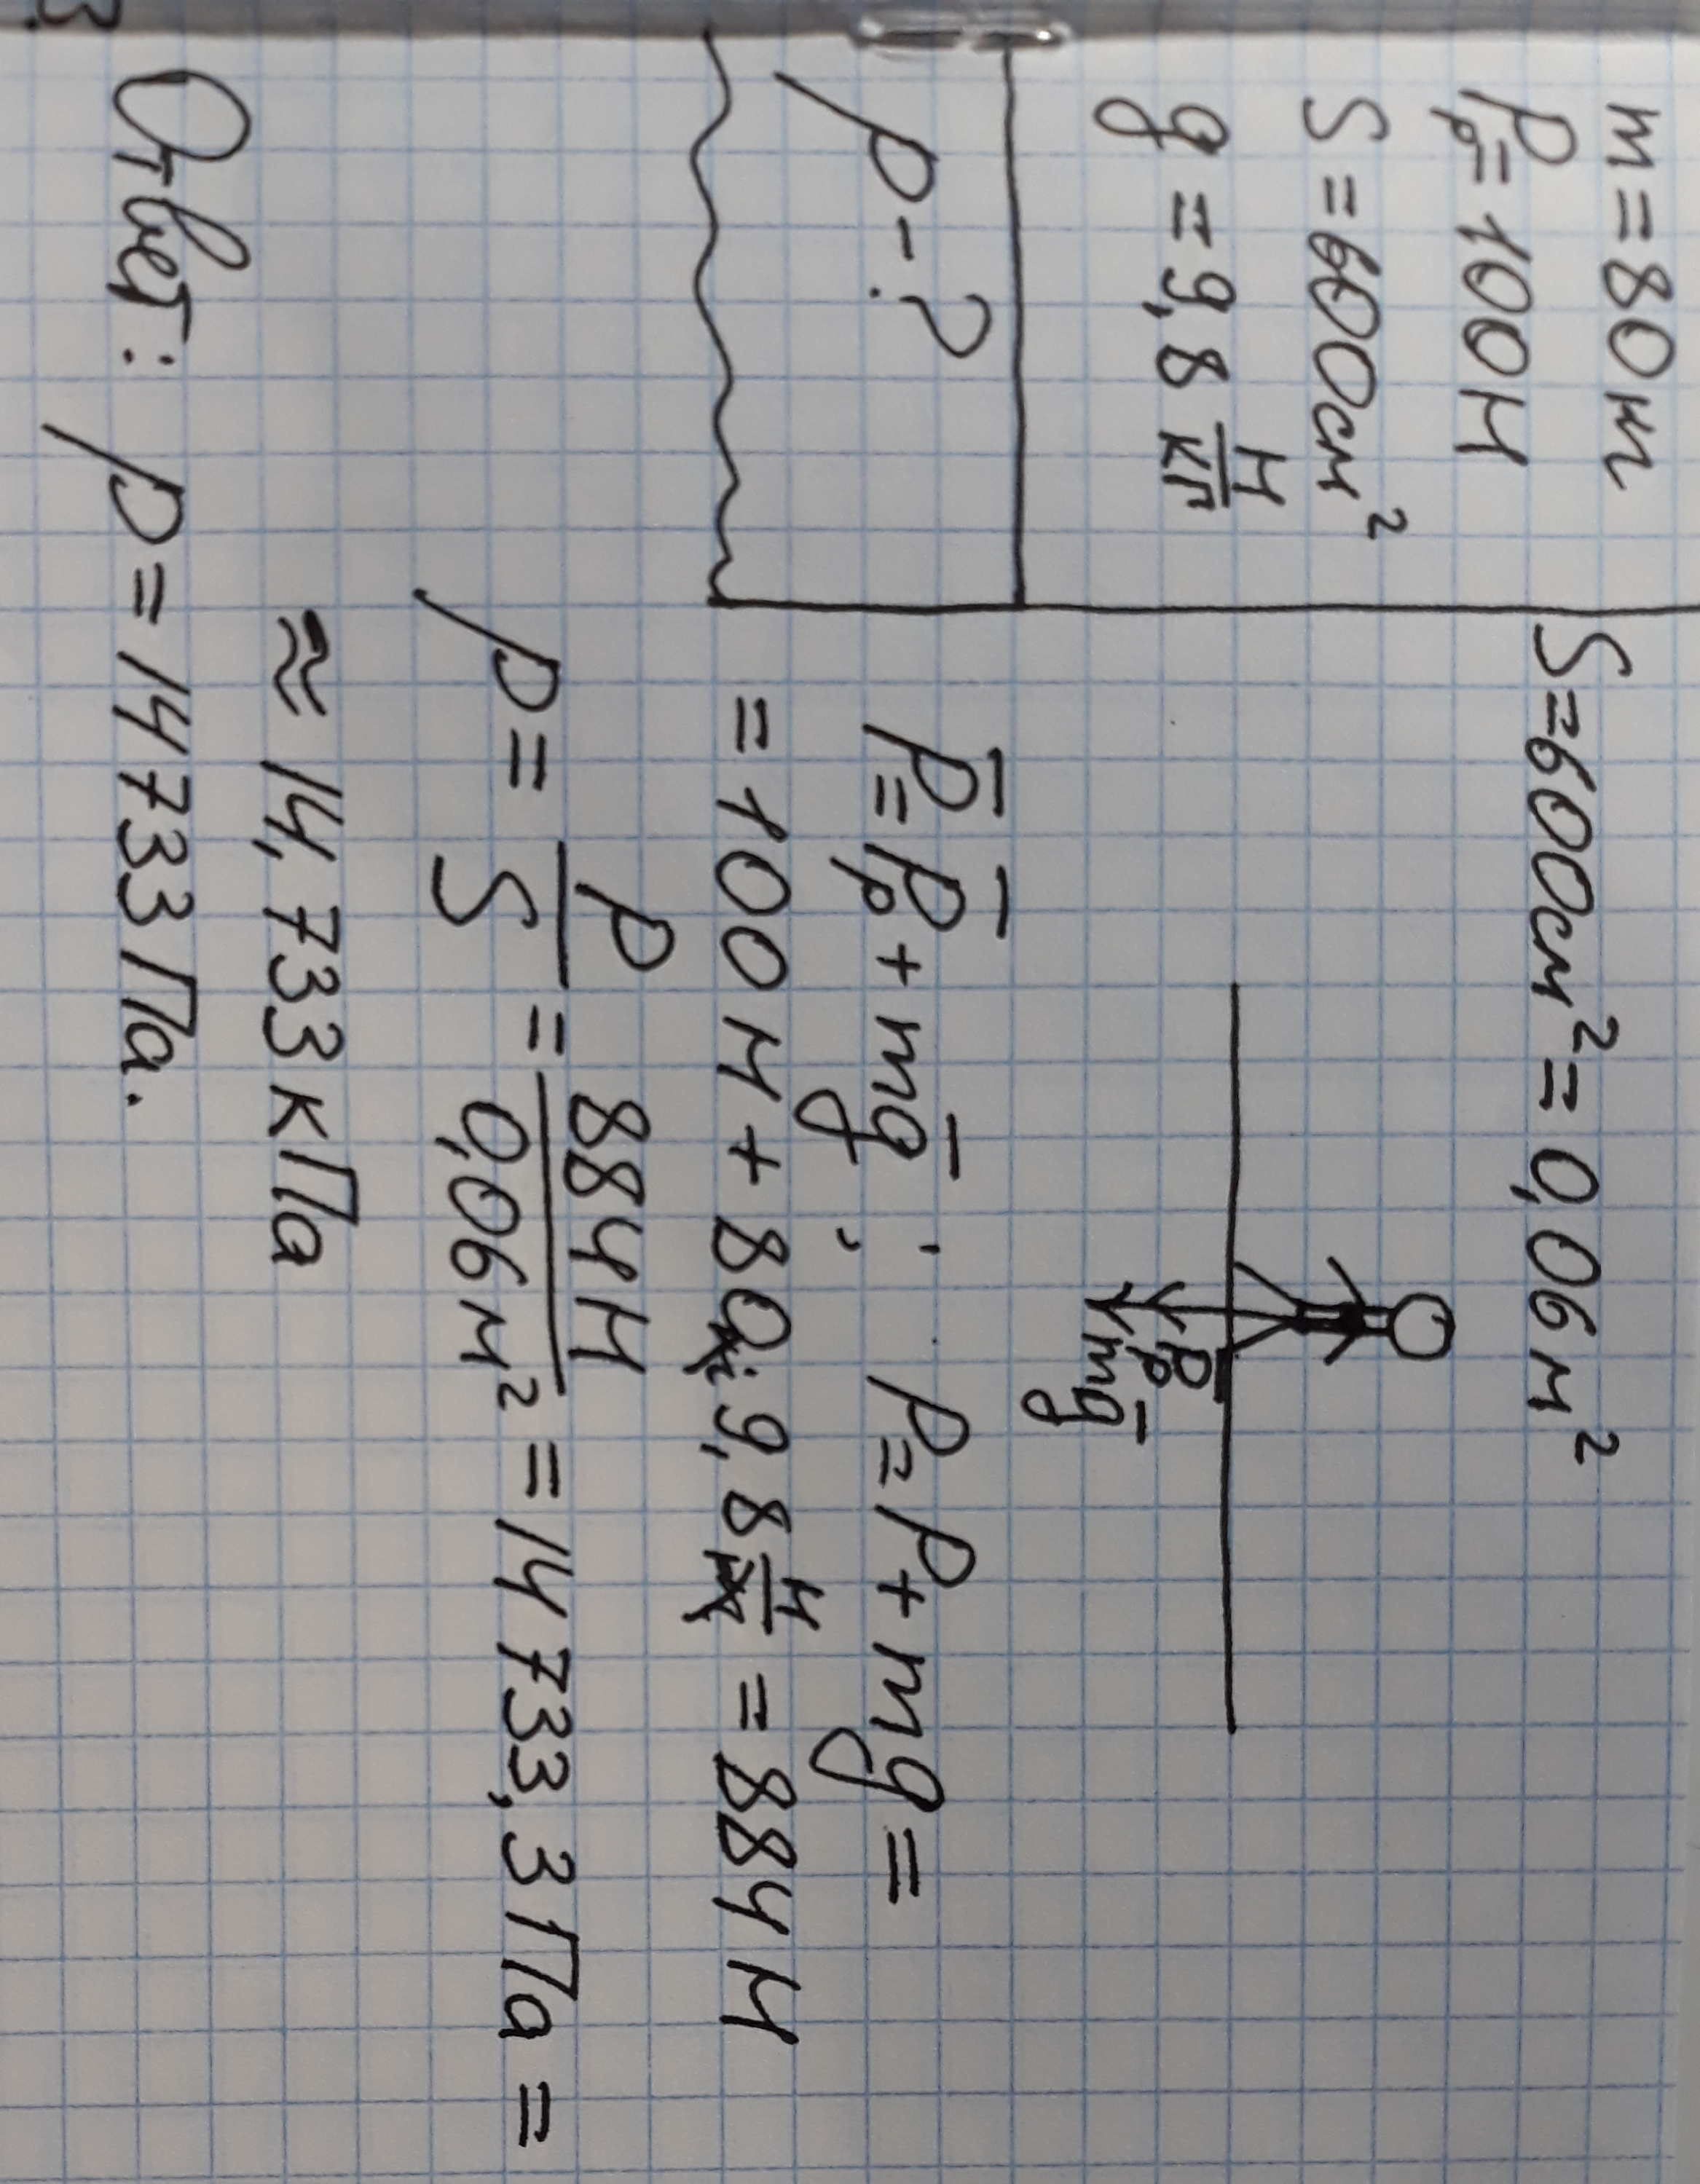 m = 80 м
Pр = 100 Н
S = 600 см²
g = 9,8 Н/кг
p - ?
S = 600 см² = 0,06 м²
Pр
mg
P = Pр + mg ; P = P + mg =
= 100 Н + 80 · 9,8 Н = 884 Н
p = P/S = 884 Н / 0,06 м² = 14 733,3 Па =
≈ 14,733 кПа
Ответ: p = 14 733 Па.
3.